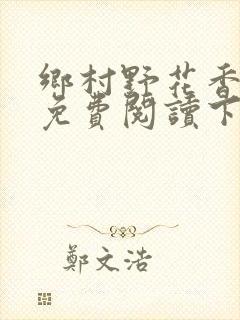 鄉村野花香
免費閱讀下
鄭文浩